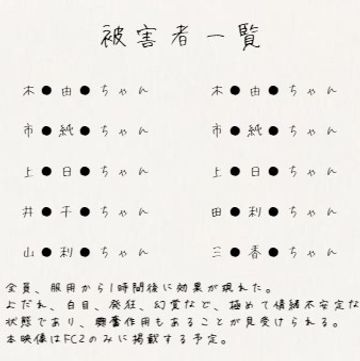 被害者一覧
木●由●ちゃん 木●由●ちゃん
市●純●ちゃん 市●純●ちゃん
上●日●ちゃん 上●日●ちゃん
井●千●ちゃん 田●利●ちゃん
山●利●ちゃん 三●香●ちゃん
全員、服用から1時間後に効果が現れた。
よだれ、白目、発狂、幻覚など、極めて情緒不安定な
状態であり、興奮作用もあることが見受けられる。
本映像はFC2のみに掲載する予定。